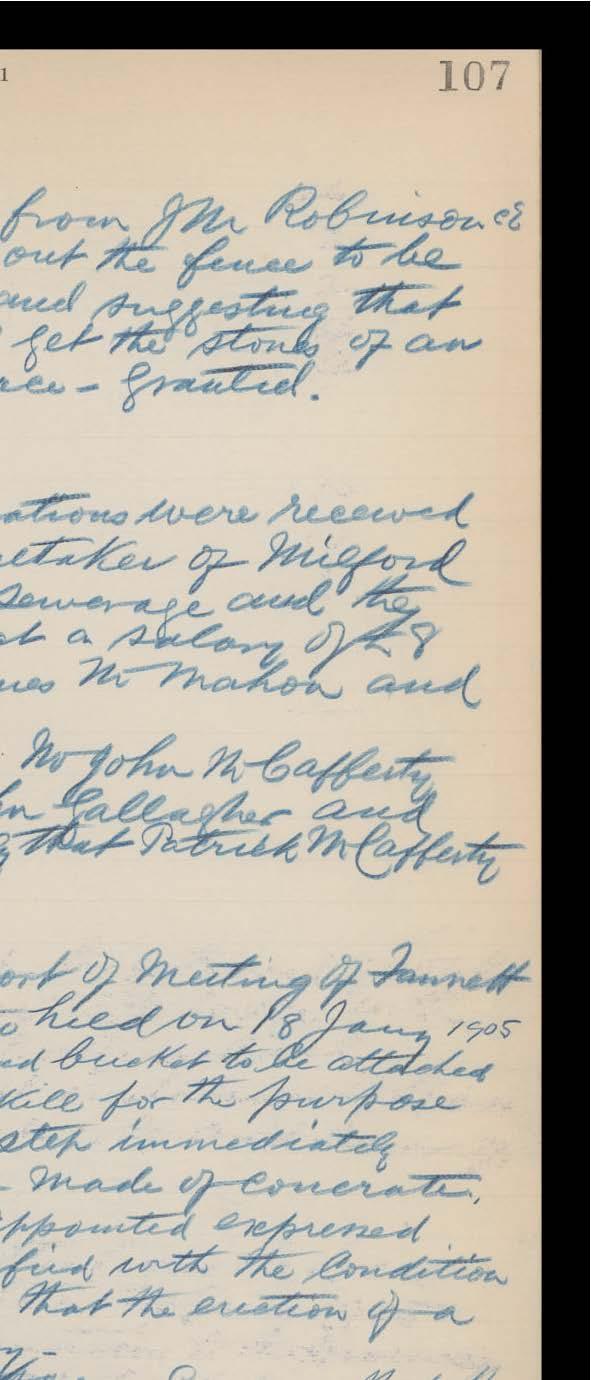 1 107
from JM Robinson CE
out the fence to be
and suggesting that
get the stones of an
rce - Granted.
ations were received
retaker of Milford
Sewerage and the
at a salary of £8
mes McMahon and
Mr John McCafferty
hn Gallagher and
g that Patrick McCafferty
ort of Meeting of Fannett
held on 18 Jany 1905
ed bucket to be attached
kill for the purpose
step immediately
- Made of Concrate,
ppointed expressed
fied with the Condition
that the erection of a